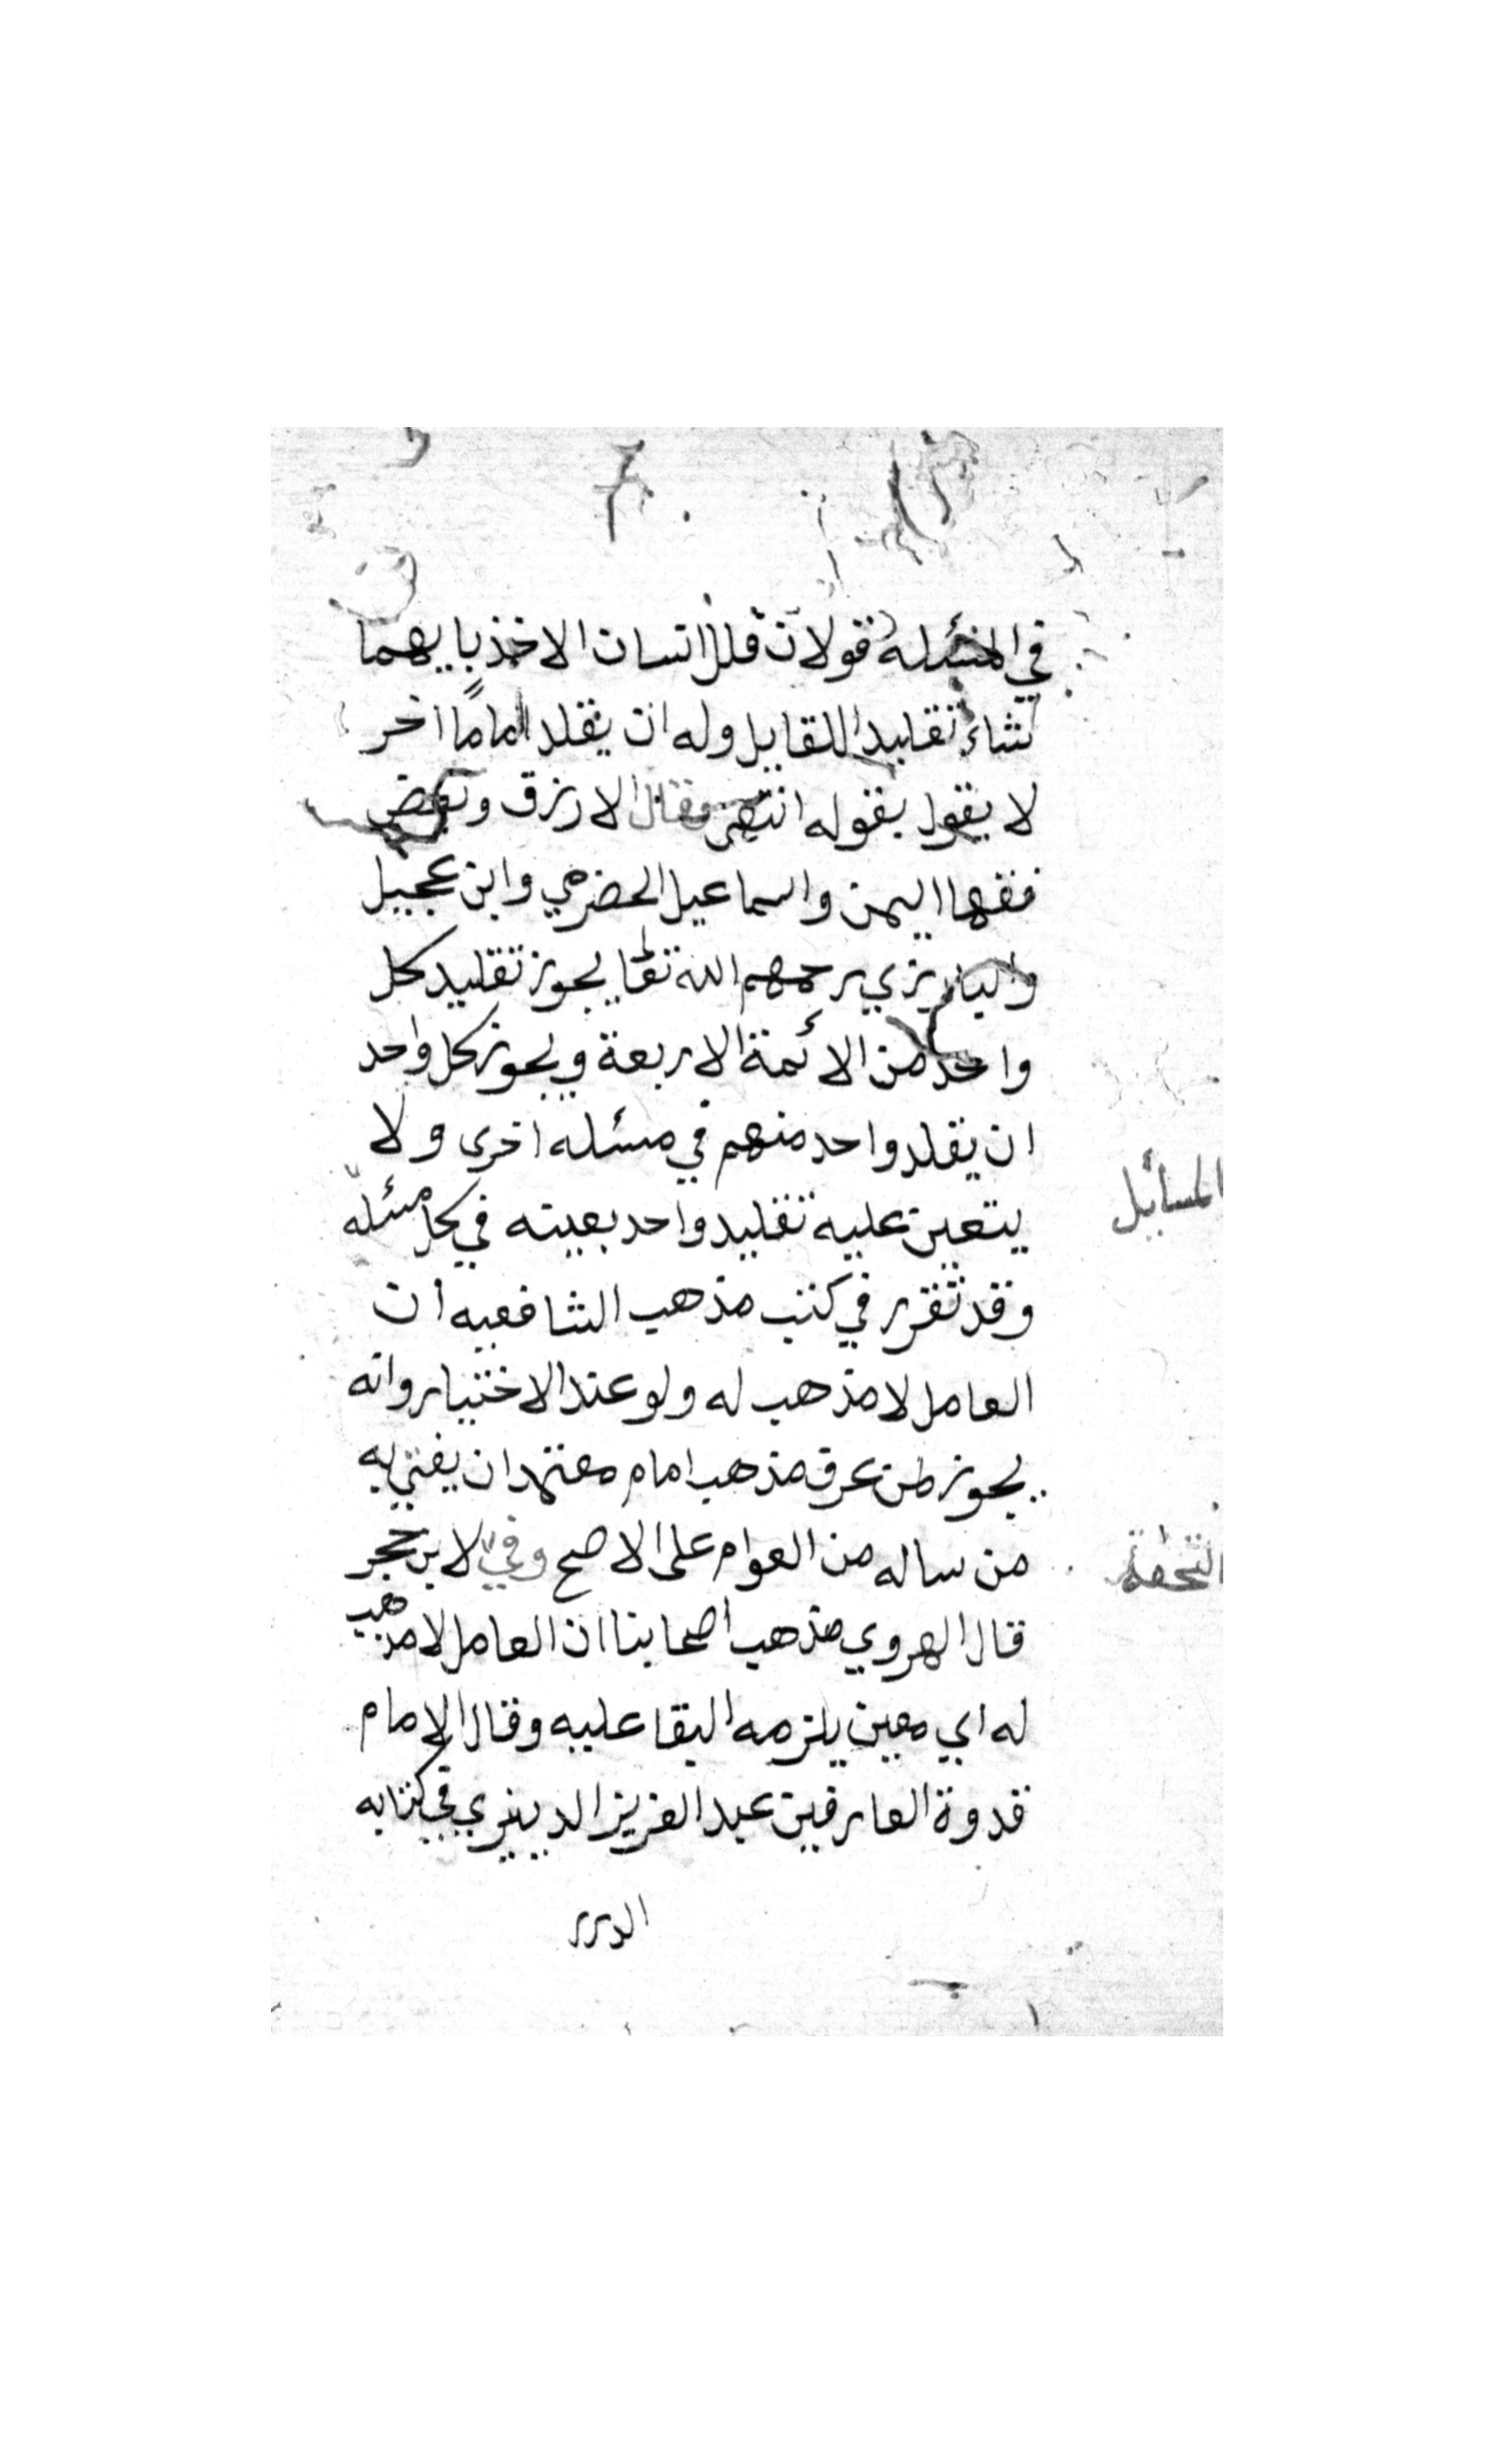 في المسئلة قولان فللانسان الاخذ بايهما
شاء تقليدا للقايل وله ان يقلد اماما اخر
لا يقول بقوله انتهى وقال الازرق وبعض
فقها اليمن واسماعيل الحضرمي وابن عجيل
والبارزي رحمهم الله تعالى يجوز تقليد كل
واحد من الائمة الاربعة ويجوز لكل واحد
ان يقلد واحد منهم في مسئله اخرى ولا
يتعين عليه تقليد واحد بعينه في كل مسئله
المسايل
وقد تقرر في كتب مذهب الشافعيه ان
العامل لا مذهب له ولو عند الاختيار وانه
يجوز لمن عرف مذهب امام معتمد ان يفتي به
من ساله من العوام على الاصح وفي لابن حجر
التحفة
قال الهروي مذهب اصحابنا ان العامل لا مذهب
له اي معين يلزمه البقا عليه وقال الامام
قدوة العارفين عبد العزيز الديريني في كتابه
الدرر